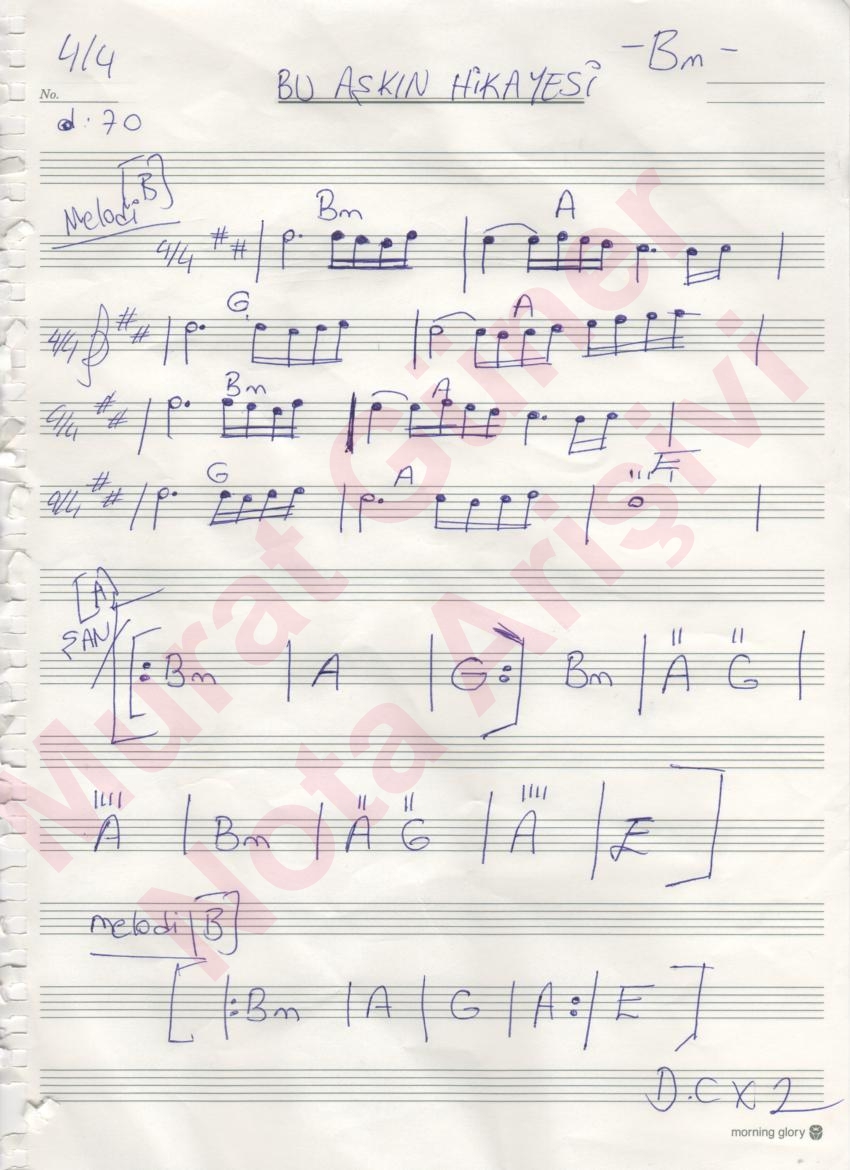 4/4
BU AŞKIN HİKAYESİ
- Bm -
No.
: 70
Melodi [B]
Bm A
4/4
G A
4/4
Bm A
4/4
G A E
4/4
[A]
ŞAN
[: Bm | A | G :] Bm | A G |
A | Bm | A G | A | E ]
melodi [B]
[ |: Bm | A | G | A :| E ]
D.C x 2
morning glory
Murat Güner
Nota Arişivi